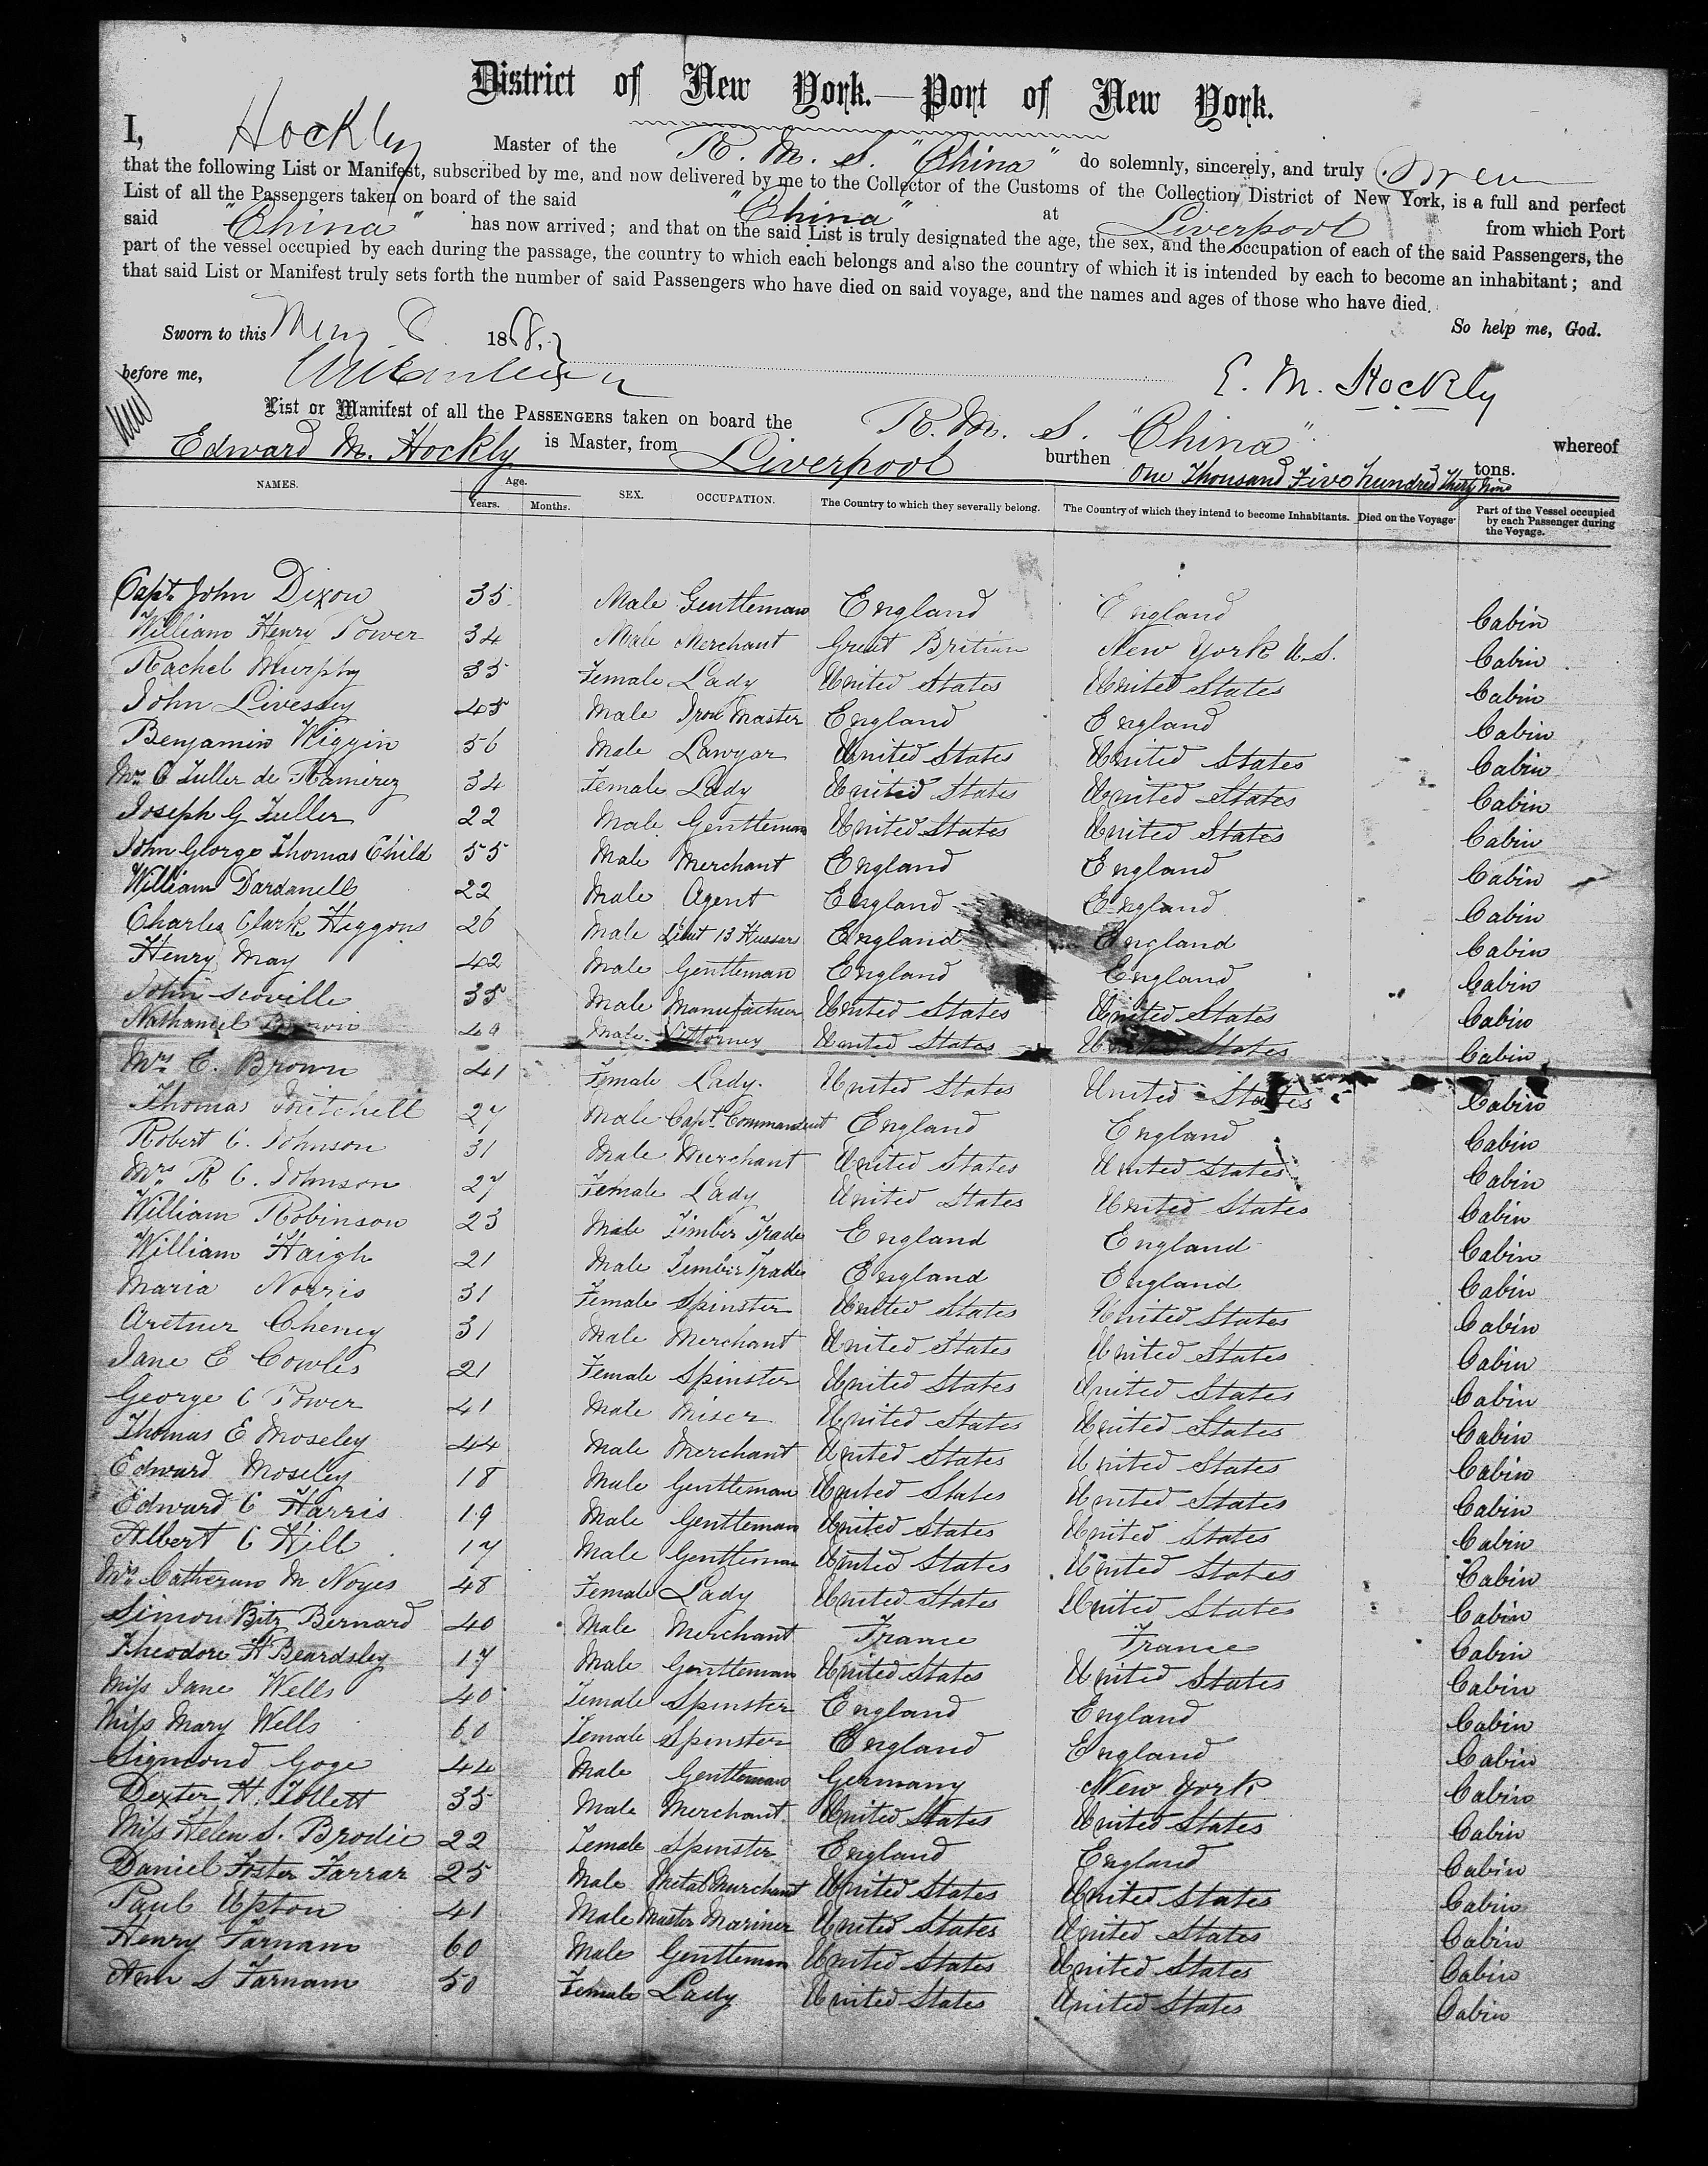 District of New York.—Port of New York.
I, Hockly Master of the R. M. S. "China" do solemnly, sincerely, and truly
that the following List or Manifest, subscribed by me, and now delivered by me to the Collector of the Customs of the Collection District of New York, is a full and perfect
List of all the Passengers taken on board of the said "China" at Liverpool from which Port
said "China" has now arrived; and that on the said List is truly designated the age, the sex, and the occupation of each of the said Passengers, the
part of the vessel occupied by each during the passage, the country to which each belongs and also the country of which it is intended by each to become an inhabitant; and
that said List or Manifest truly sets forth the number of said Passengers who have died on said voyage, and the names and ages of those who have died.
So help me, God.
Sworn to this 1868.
before me, E. M. Hockly
List or Manifest of all the PASSENGERS taken on board the R. M. S. "China" whereof
Edward M. Hockly is Master, from Liverpool burthen One Thousand Five hundred & thirty Nine tons.
NAMES. Age. Years. Months. SEX. OCCUPATION. The Country to which they severally belong. The Country of which they intend to become Inhabitants. Died on the Voyage. Part of the Vessel occupied by each Passenger during the Voyage.
Capt. John Dixon 35 Male Gentleman England England Cabin
William Henry Power 34 Male Merchant Great Britian New York U.S. Cabin
Rachel Murphy 35 Female Lady United States United States Cabin
John Livessey 45 Male Iron Master England England Cabin
Benjamin Wiggin 56 Male Lawyar United States United States Cabin
Mrs C Fuller de Ramirez 34 Female Lady United States United States Cabin
Joseph G Fuller 22 Male Gentleman United States United States Cabin
John George Thomas Child 55 Male Merchant England England Cabin
William Dardanells 22 Male Agent England England Cabin
Charles Clarke Higgons 26 Male Lieut 13 Hussars England England Cabin
Henry May 42 Male Gentleman England England Cabin
John Scoville 35 Male Manufactuer United States United States Cabin
Nathaniel Brown 49 Male Attorney United States United States Cabin
Mrs C. Brown 41 Female Lady. United States United States Cabin
Thomas Mitchell 27 Male Capt. England England Cabin
Robert C. Johnson 31 Male Merchant United States United States Cabin
Mrs R C. Johnson 27 Female Lady United States United States Cabin
William Robinson 23 Male Timber Trade England England Cabin
William Haigh 21 Male Timber Trade England England Cabin
Maria Norris 31 Female Spinster United States United States Cabin
Aretner Cheney 31 Male Merchant United States United States Cabin
Jane E Cowles 21 Female Spinster United States United States Cabin
George C Power 41 Male Miser United States United States Cabin
Thomas E Moseley 44 Male Merchant United States United States Cabin
Edward Moseley 18 Male Gentleman United States United States Cabin
Edward C Harris 19 Male Gentleman United States United States Cabin
Albert C Hill 17 Male Gentleman United States United States Cabin
Mrs Catherine M Noyes 48 Female Lady United States United States Cabin
Simon Bernard 40 Male Merchant France France Cabin
Theodore H Beardsley 17 Male Gentleman United States United States Cabin
Miss Jane Wells 40 Female Spinster England England Cabin
Miss Mary Wells 60 Female Spinster England England Cabin
Sigmond Goge 44 Male Gentleman Germany New York Cabin
Dexter H. Follett 35 Male Merchant United States United States Cabin
Miss Helen S. Brodie 22 Female Spinster England England Cabin
Daniel Foster Farrar 25 Male Metal Murchant United States United States Cabin
Paul Upton 41 Male Master Mariner United States United States Cabin
Henry Farnam 60 Male Gentleman United States United States Cabin
Ann S Farnam 50 Female Lady United States United States Cabin